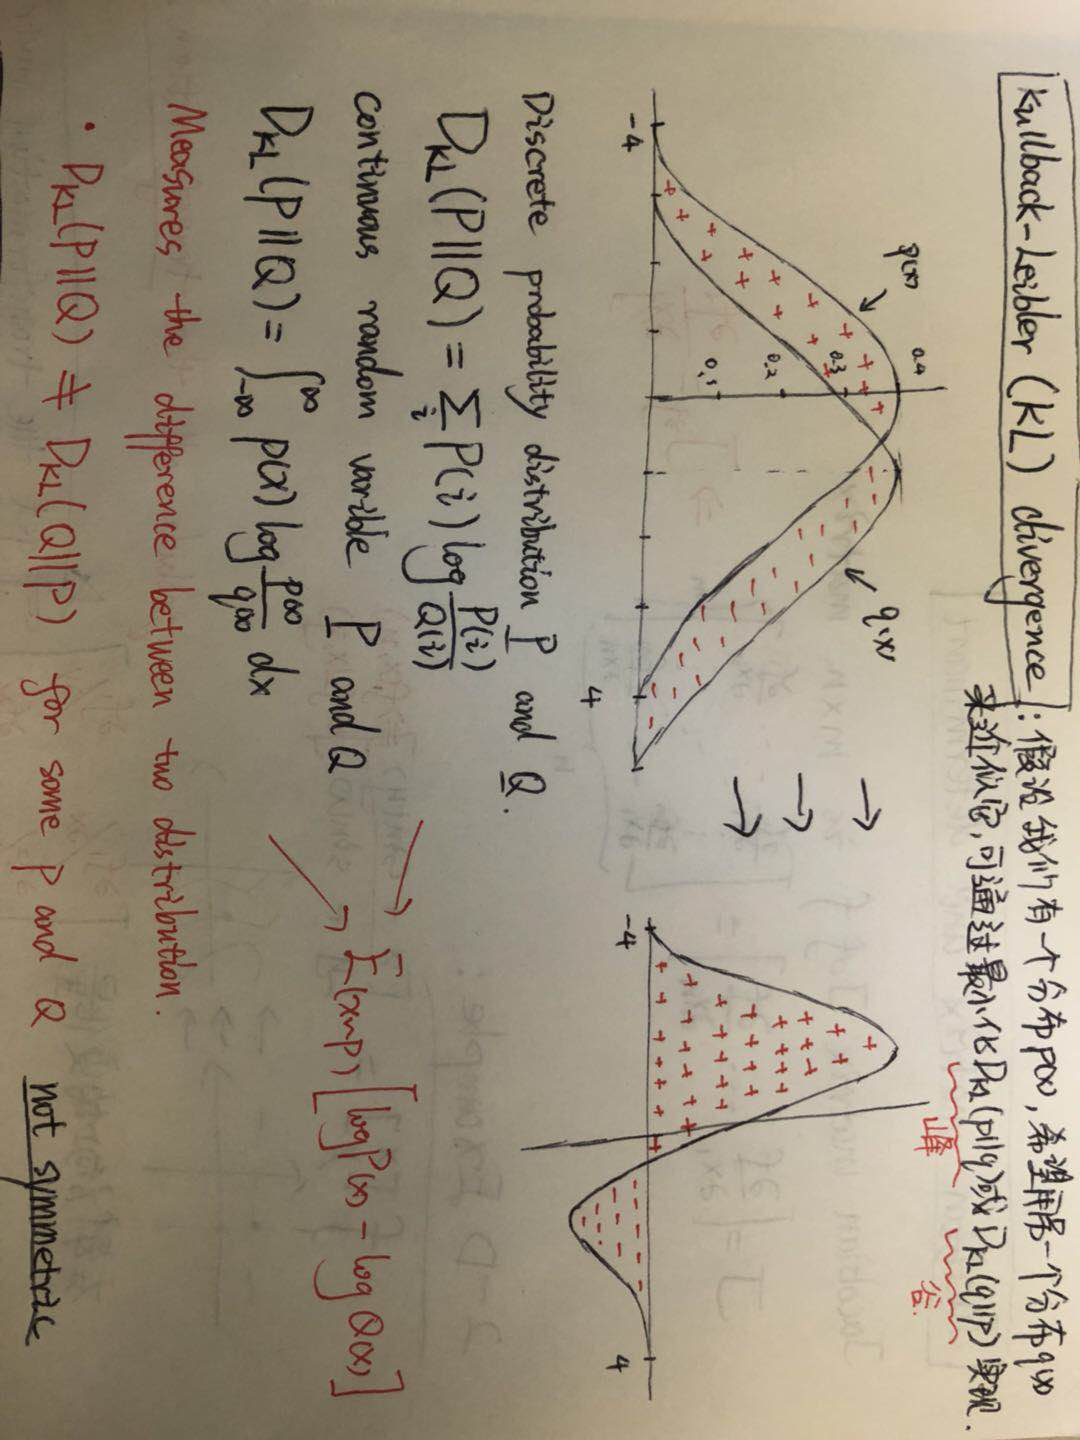 Kullback-Leibler (KL) divergence : 假设我们有一个分布p(x), 希望用另一个分布q(x)
来近似它, 可通过最小化D_KL(p||q)或D_KL(q||p)实现.
峰 谷.
p(x) 0.4 q(x)
0.3
0.2
0.1
-4 4 -4 4
Discrete probability distribution P and Q.
D_KL(P||Q) = ∑_i P(i) log P(i)/Q(i)
continuous random varible P and Q
E(x~p) [logP(x) - log Q(x)]
D_KL(P||Q) = ∫_{-∞}^{∞} p(x) log p(x)/q(x) dx
Measures the difference between two distribution.
· D_KL(P||Q) ≠ D_KL(Q||P) for some p and Q not symmetric